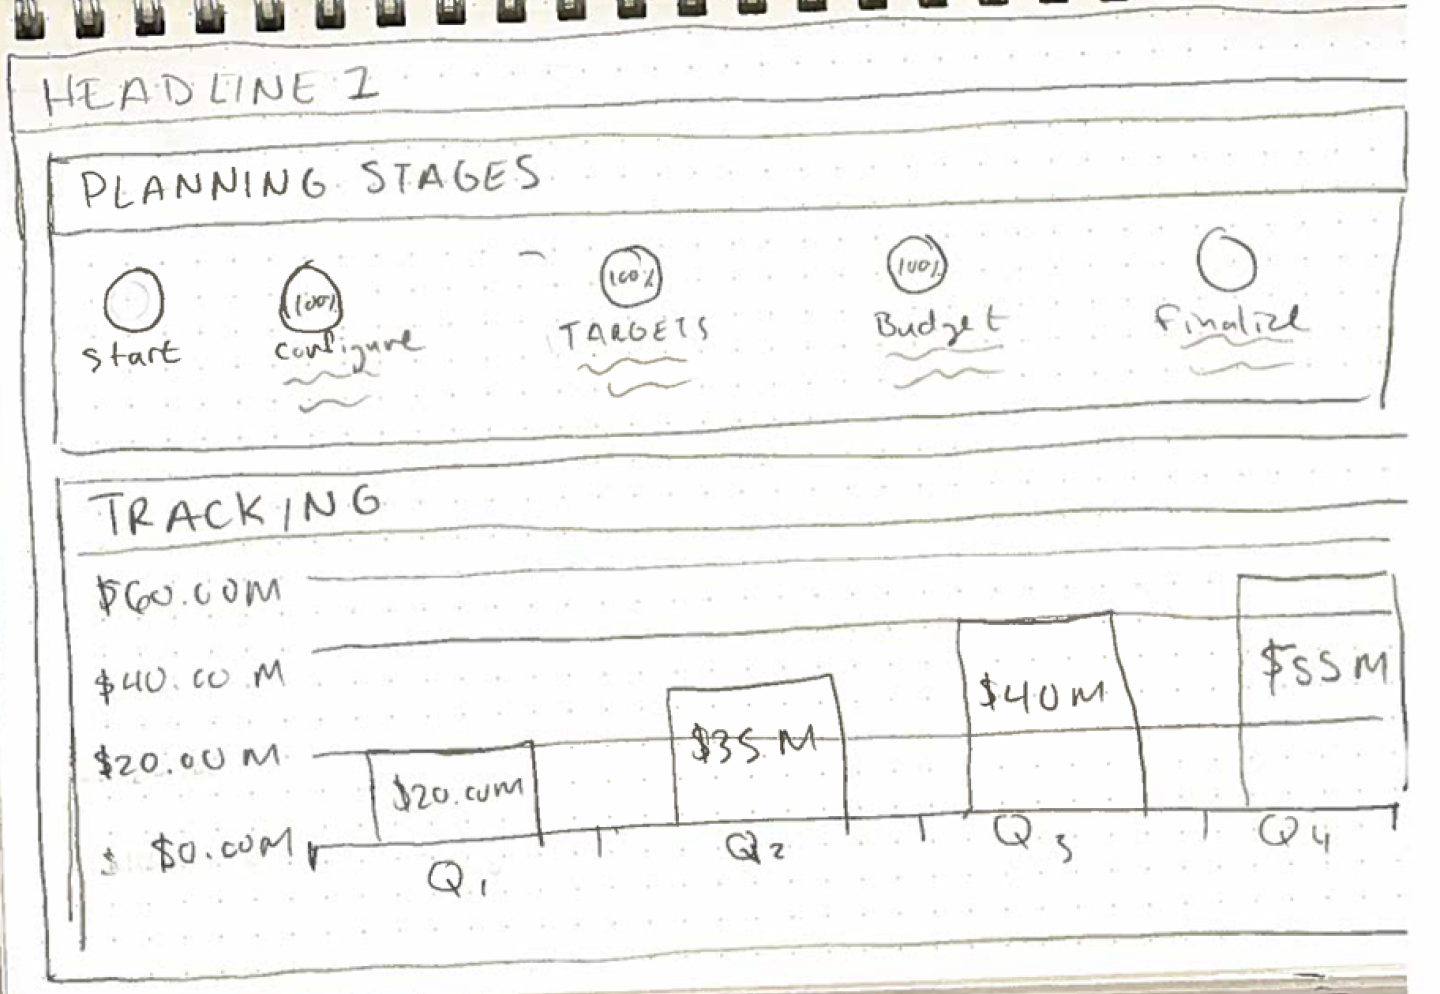 HEADLINE 1
PLANNING STAGES
100% 100% 100%
Start Configure TARGETS Budget Finalize
TRACKING
$60.00M
$40.00 M
$20.00 M
$ $0.00M
$20.00M $35 M $40M $55M
Q1 Q2 Q3 Q4